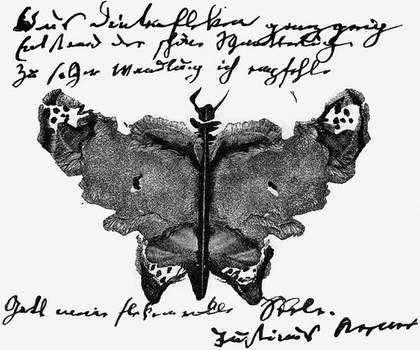 Aus Dintenflecken ganz gering
Entstand der schöne Schmetterling.
Zu solcher Wandlung ich empfehle
Gott meine fleckenvolle Seele.
Justinus Kerner